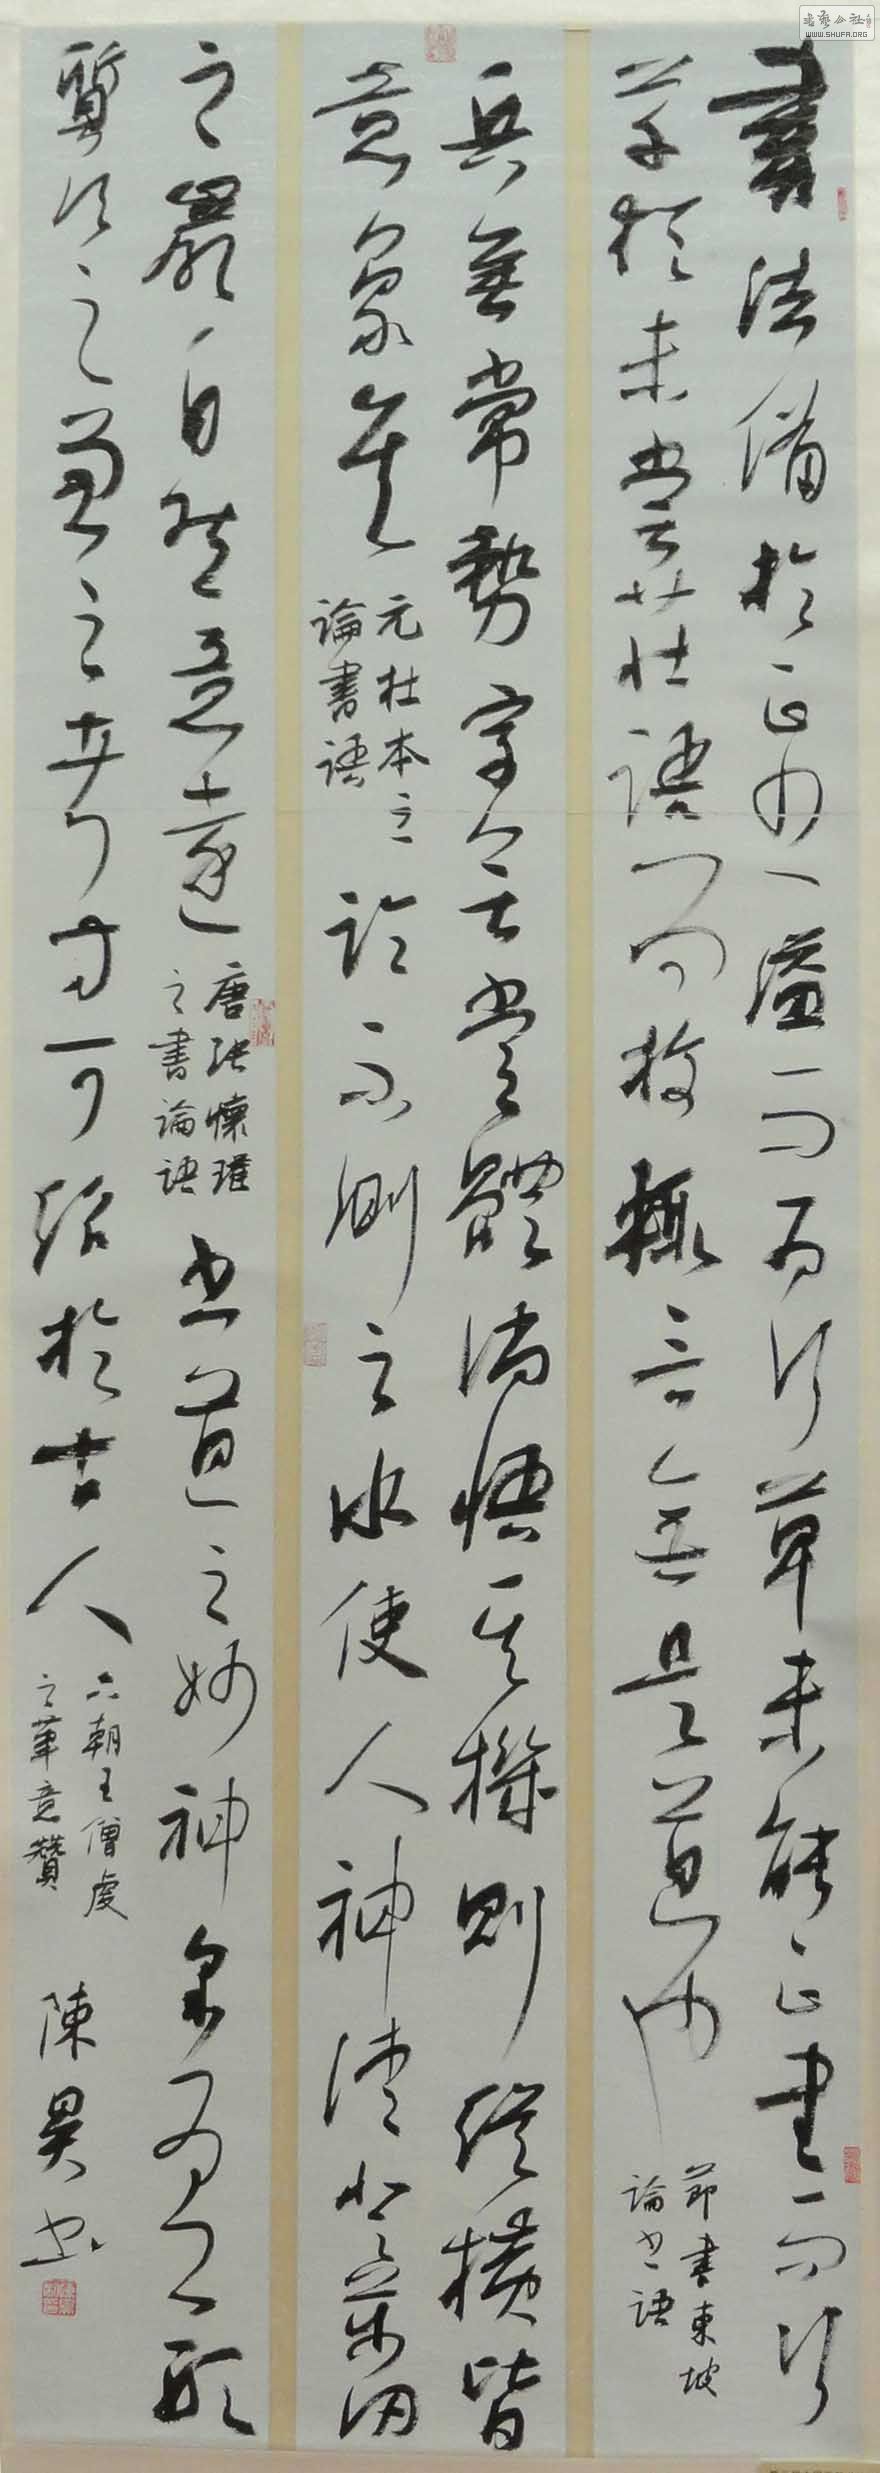 書法備於正书溢而為行草未能正書而行
草猶未嘗莊語而放輒言無是道也
節書東坡
論书語
兵無常勢字無常體倘悟其機則縱橫皆
意象矣
元杜本之
論書語
臨不測之水使人神清登萬仞
之巖自然意遠
唐張懷瓘
之書論語
书道之妙神彩為上形
質次之兼之者方可紹於古人
六朝王僧虔
之筆意贊
陳昊书
WWW.SHUFA.ORG